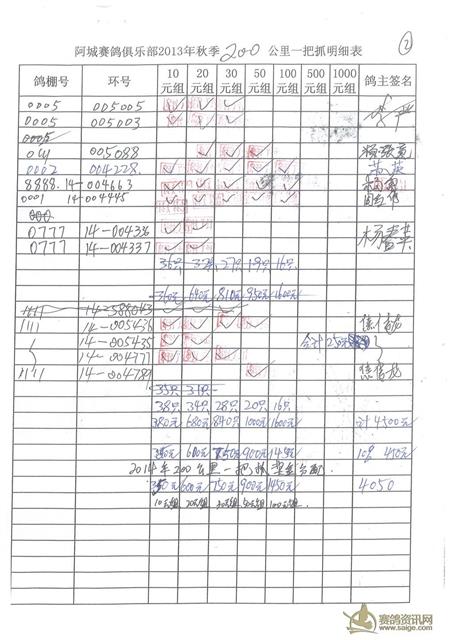 ②
阿城赛鸽俱乐部2013年秋季200公里一把抓明细表
鸽棚号 环号 10元组 20元组 30元组 50元组 100元组 500元组 1000元组 鸽主签名
0005 005005 ✓ ✓ ✓
0005 005003 ✓ ✓ ✓
0005
005088 ✓ ✓ ✓
0002 004228 ✓ ✓ ✓ ✓ ✓
8888 14-004663 ✓ ✓ ✓ ✓ ✓
0001 14-004445 ✓ ✓ ✓ ✓ ✓
000
0777 14-004336 ✓ ✓ ✓
0777 14-004337 ✓ ✓ ✓
36只 32只 27只 19只 16只
360元 640元 810元 950元 1600元
1111
1111 14-005436 ✓ ✓ ✓ ✓
14-005435 ✓ ✓ ✓ 合计250元
14-004777 ✓ ✓ ✓
1111 14-004789 ✓
35只 31只
38只 34只 28只 20只 16只
380元 680元 840元 1000元 1600元 计4500元
600元 750元 900元 10% 450元
2014年200公里一把抓
350元 600元 750元 900元 1450元 4050
10元组 20元组 30元组 50元组 100元组
赛鸽资讯网
www.saige.com